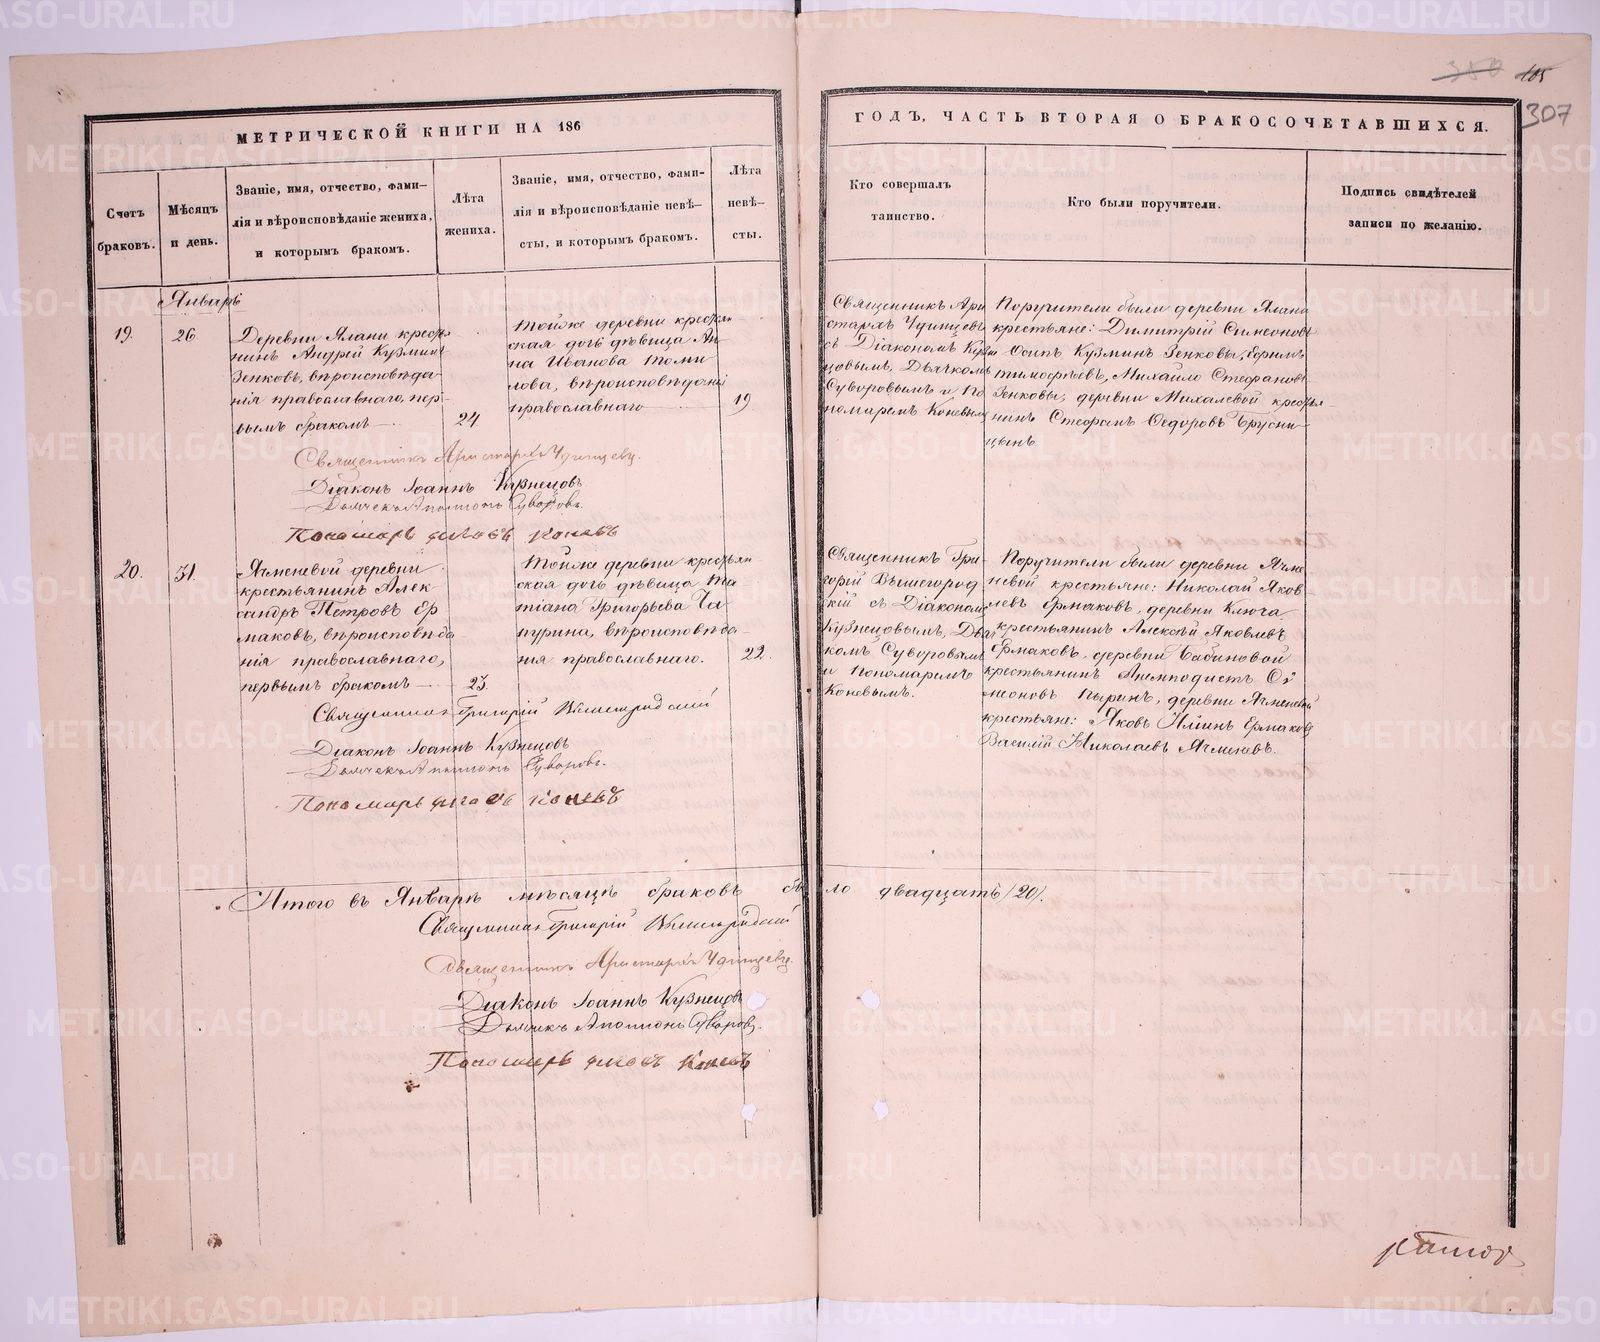 350 105
307
МЕТРИЧЕСКОЙ КНИГИ НА 186
ГОДЪ, ЧАСТЬ ВТОРАЯ О БРАКОСОЧЕТАВШИХСЯ.
Счетъ
браковъ.
Мѣсяцъ
и день.
Званіе, имя, отчество, фами-
лія и вѣроисповѣданіе жениха,
и которымъ бракомъ.
Лѣта
жениха.
Званіе, имя, отчество, фами-
лія и вѣроисповѣданіе невѣ-
сты, и которымъ бракомъ.
Лѣта
невѣ-
сты.
Кто совершалъ
таинство.
Кто были поручители.
Подпись свидѣтелей
записи по желанію.
Январь
19.
26
Деревни Ялани кресть
нинъ Андрей Кузмин
Зенковъ, вѣроисповѣда-
нія православнаго, пер-
вымъ бракомъ
24
Тойже деревни крестьян
ская дочь дѣвица Ан
на Иванова Томи
лова, вѣроисповѣданія
православнаго
19
Священникъ Ари
стархъ Удинцевъ
съ Діакономъ Кузне
цовымъ, Дьячкомъ
Суворовымъ и По
номаремъ Коневым
Поручители были деревни Ялани
крестьяне: Димитрій Симеоновъ
Осипъ Кузминъ Зенковы, Ефимъ
тимофѣевъ, Михайло Стефановъ
Зенковы, деревни Михалевой крестья-
нинъ Стефанъ Ѳедоровъ Брусни-
цынъ
Священникъ Аристархъ Удинцевъ.
Діаконъ Іоаннъ Кузнецовъ
Дьячекъ Суворовъ.
Пономарь Коневъ
20.
31.
Ячменевой деревни
крестьянинъ Алек
сандръ Петровъ Ер
маковъ, вѣроисповѣда
нія православнаго,
первымъ бракомъ
23.
Тойже деревни крестьян
ская дочь дѣвица Та
тіана Григорьева Ча
пурина, вѣроисповѣда-
ния православнаго.
22.
Священникъ Гри-
горій Вышегород
скій съ Діакономъ
Кузнецовымъ, Дьяч
комъ Суворовымъ
и Пономаремъ
Коневымъ.
Поручители были деревни Ячме
невой крестьяне: Николай Яков-
левъ Ермаковъ, деревни Ключа
крестьянинъ Алексѣй Яковлевъ
Ермаковъ, деревни Бабиновой
крестьянинъ Анемподистъ Си
меоновъ Пыринъ, деревни Ячменевой
крестьяне: Яковъ Ильинъ Ермаковъ
Василій Николаевъ Ячменевъ.
Священникъ Григорій Вышегородскій
Діаконъ Іоаннъ Кузнецовъ
Дьячекъ Суворовъ.
Пономарь Коневъ
Итого въ Январѣ мѣсяцѣ браковъ было двадцать (20).
Священникъ Григорій Вышегородскій
Священникъ Аристархъ Удинцевъ.
Діаконъ Іоаннъ Кузнецовъ
Дьячекъ Суворовъ.
Пономарь Коневъ
METRIKI.GASO-URAL.RU